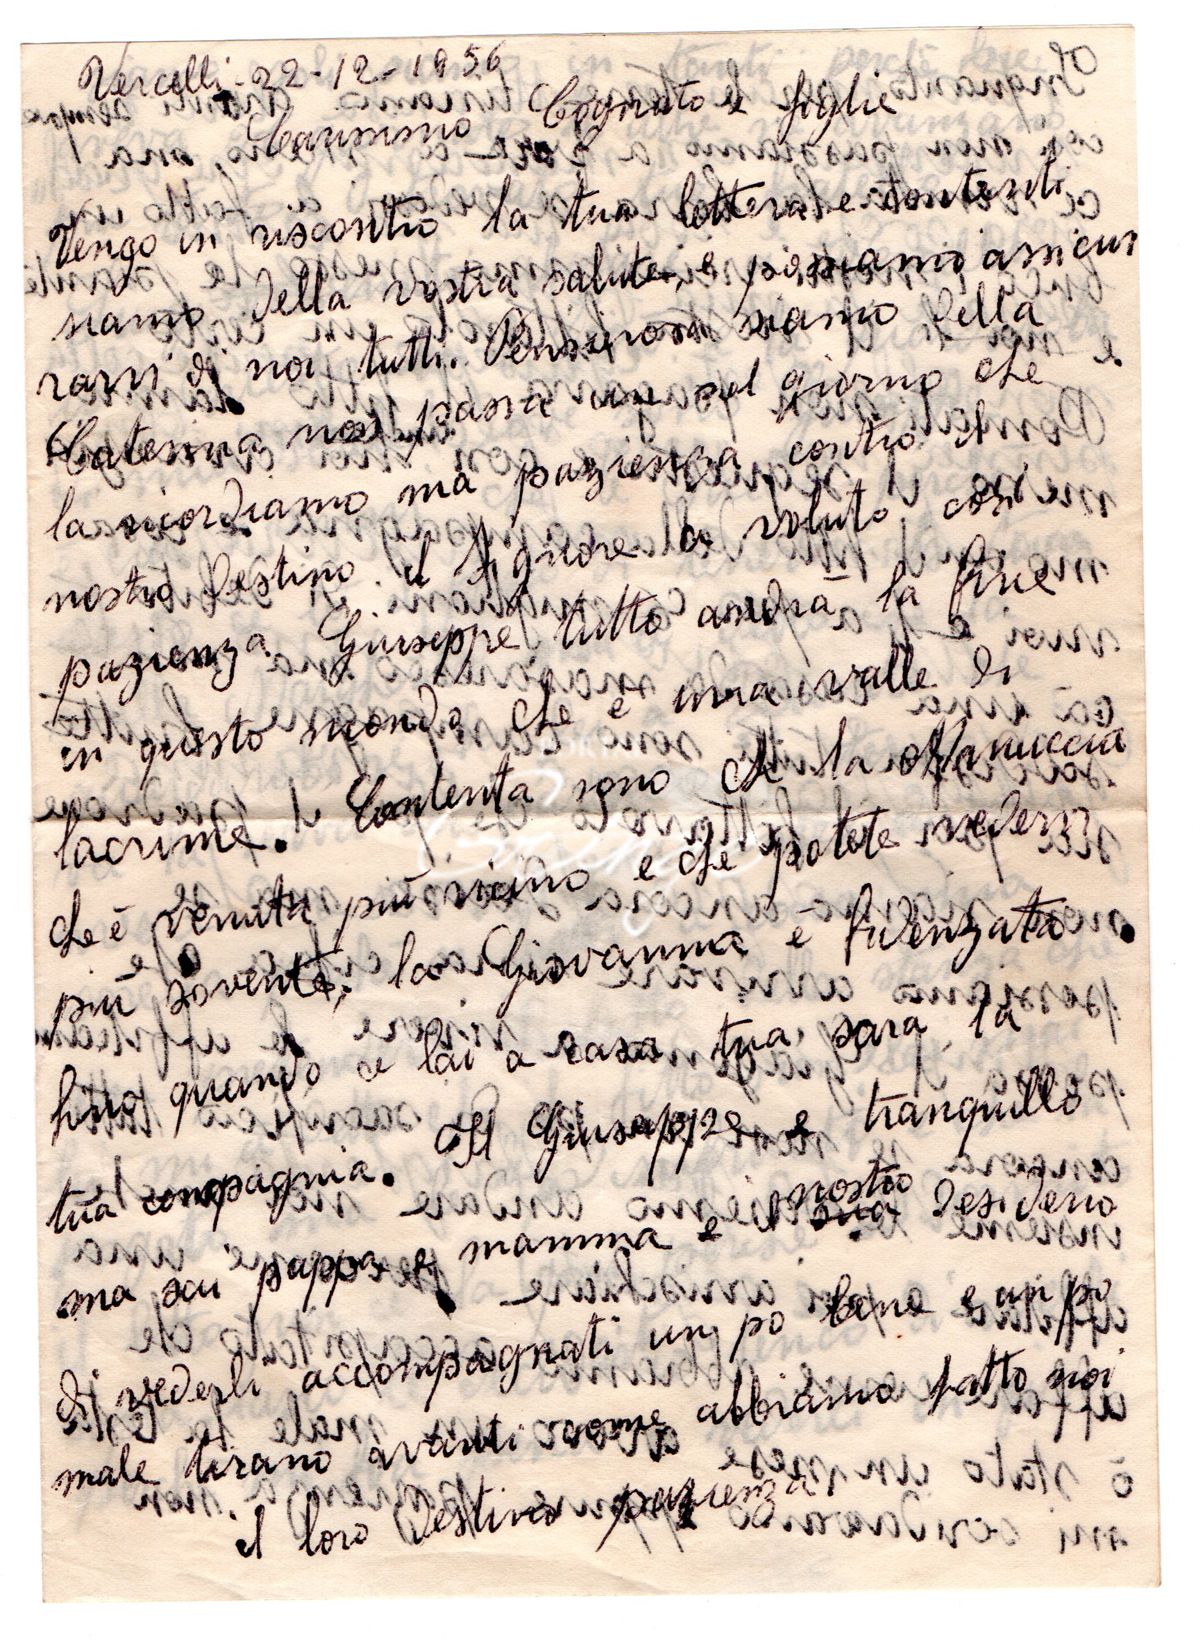 Vercelli-22-12-1956
Carissimo Cognato e figlie
Vengo in riscontro la tua lettera e contenti
siamo della vostra salute, e possiamo assicur
rarvi di noi tutti. Pensierosi siamo della
Caterina non passa un sol giorno che
la ricordiamo ma pazienza contro il
nostro destino il Signore a voluto cosi
pazienza Giuseppe tutto andrà la fine
in questo mondo che è una valle di
lacrime. Contenta sono che la Mariuccia
che è venuta più vicino e che potete vedervi
più sovente, la Giovanna è fidenzata
fino quando e lai a casa tua sara la
tua compagnia. Il Giuseppe e tranquillo
ma sai pappa e mamma e il nostro desiderio
di vederli accompagnati un po bene e un po
male tirano avanti come abbiamo fatto noi
il loro destino pazienza